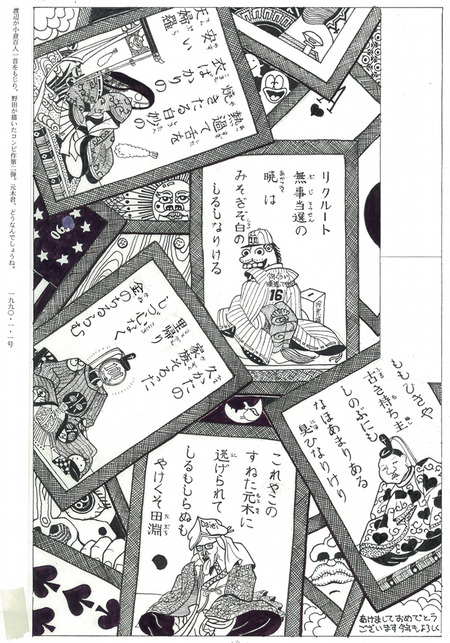 渡辺が小倉百人一首をもじり、野田が描いたコンビ作第二弾。元木君、どうなんでしょうね。 一九九〇・一・一号
熱過ぎて舌を
焼きたる白妙の
衣ばかりの
安い
天麩羅
リクルート
無事当選の
暁は
みそぎぞ白の
しるしなりける
16
久かたの
家族そろった
里帰り
しづ心なく
金のちるらむ
ももひきや
古き持ち主
しのぶにも
なほあまりある
臭ひなりけり
これやこの
すねた元木に
逃げられて
しるもしらぬも
やけくそ田淵
Daiei
あけましておめでとう
ございます今年もよろしく